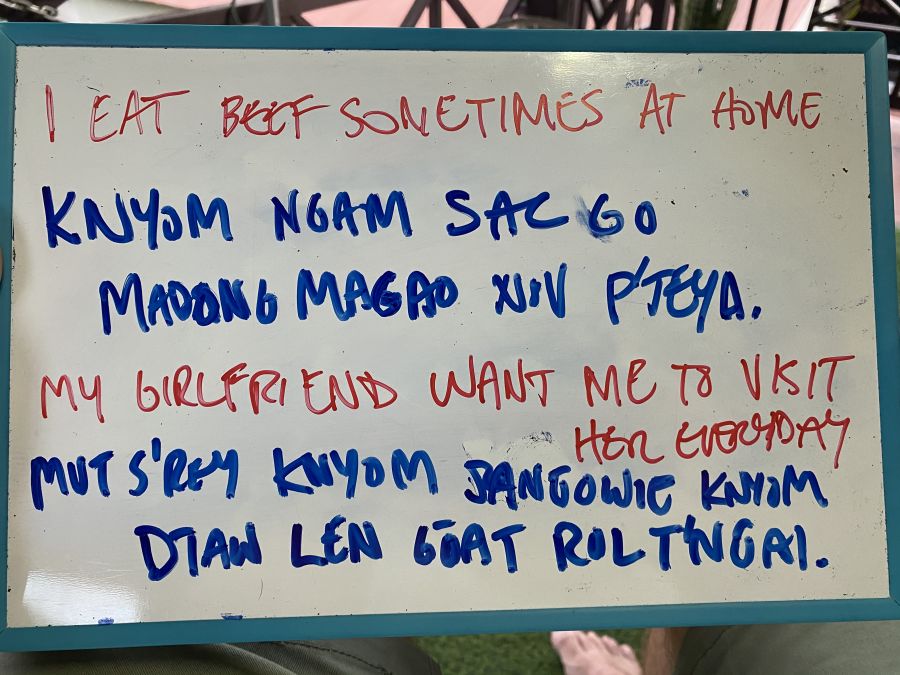 I EAT BEEF SOMETIMES AT HOME
KNYOM NGAM SAC GO
MADONG MAGAO NOV P'TEYA.
MY GIRLFRIEND WANT ME TO VISIT
HER EVERYDAY
MUT S'REY KNYOM JANGOWIE KNYOM
DTAW LĒN GŌAT ROLT'NGAI.